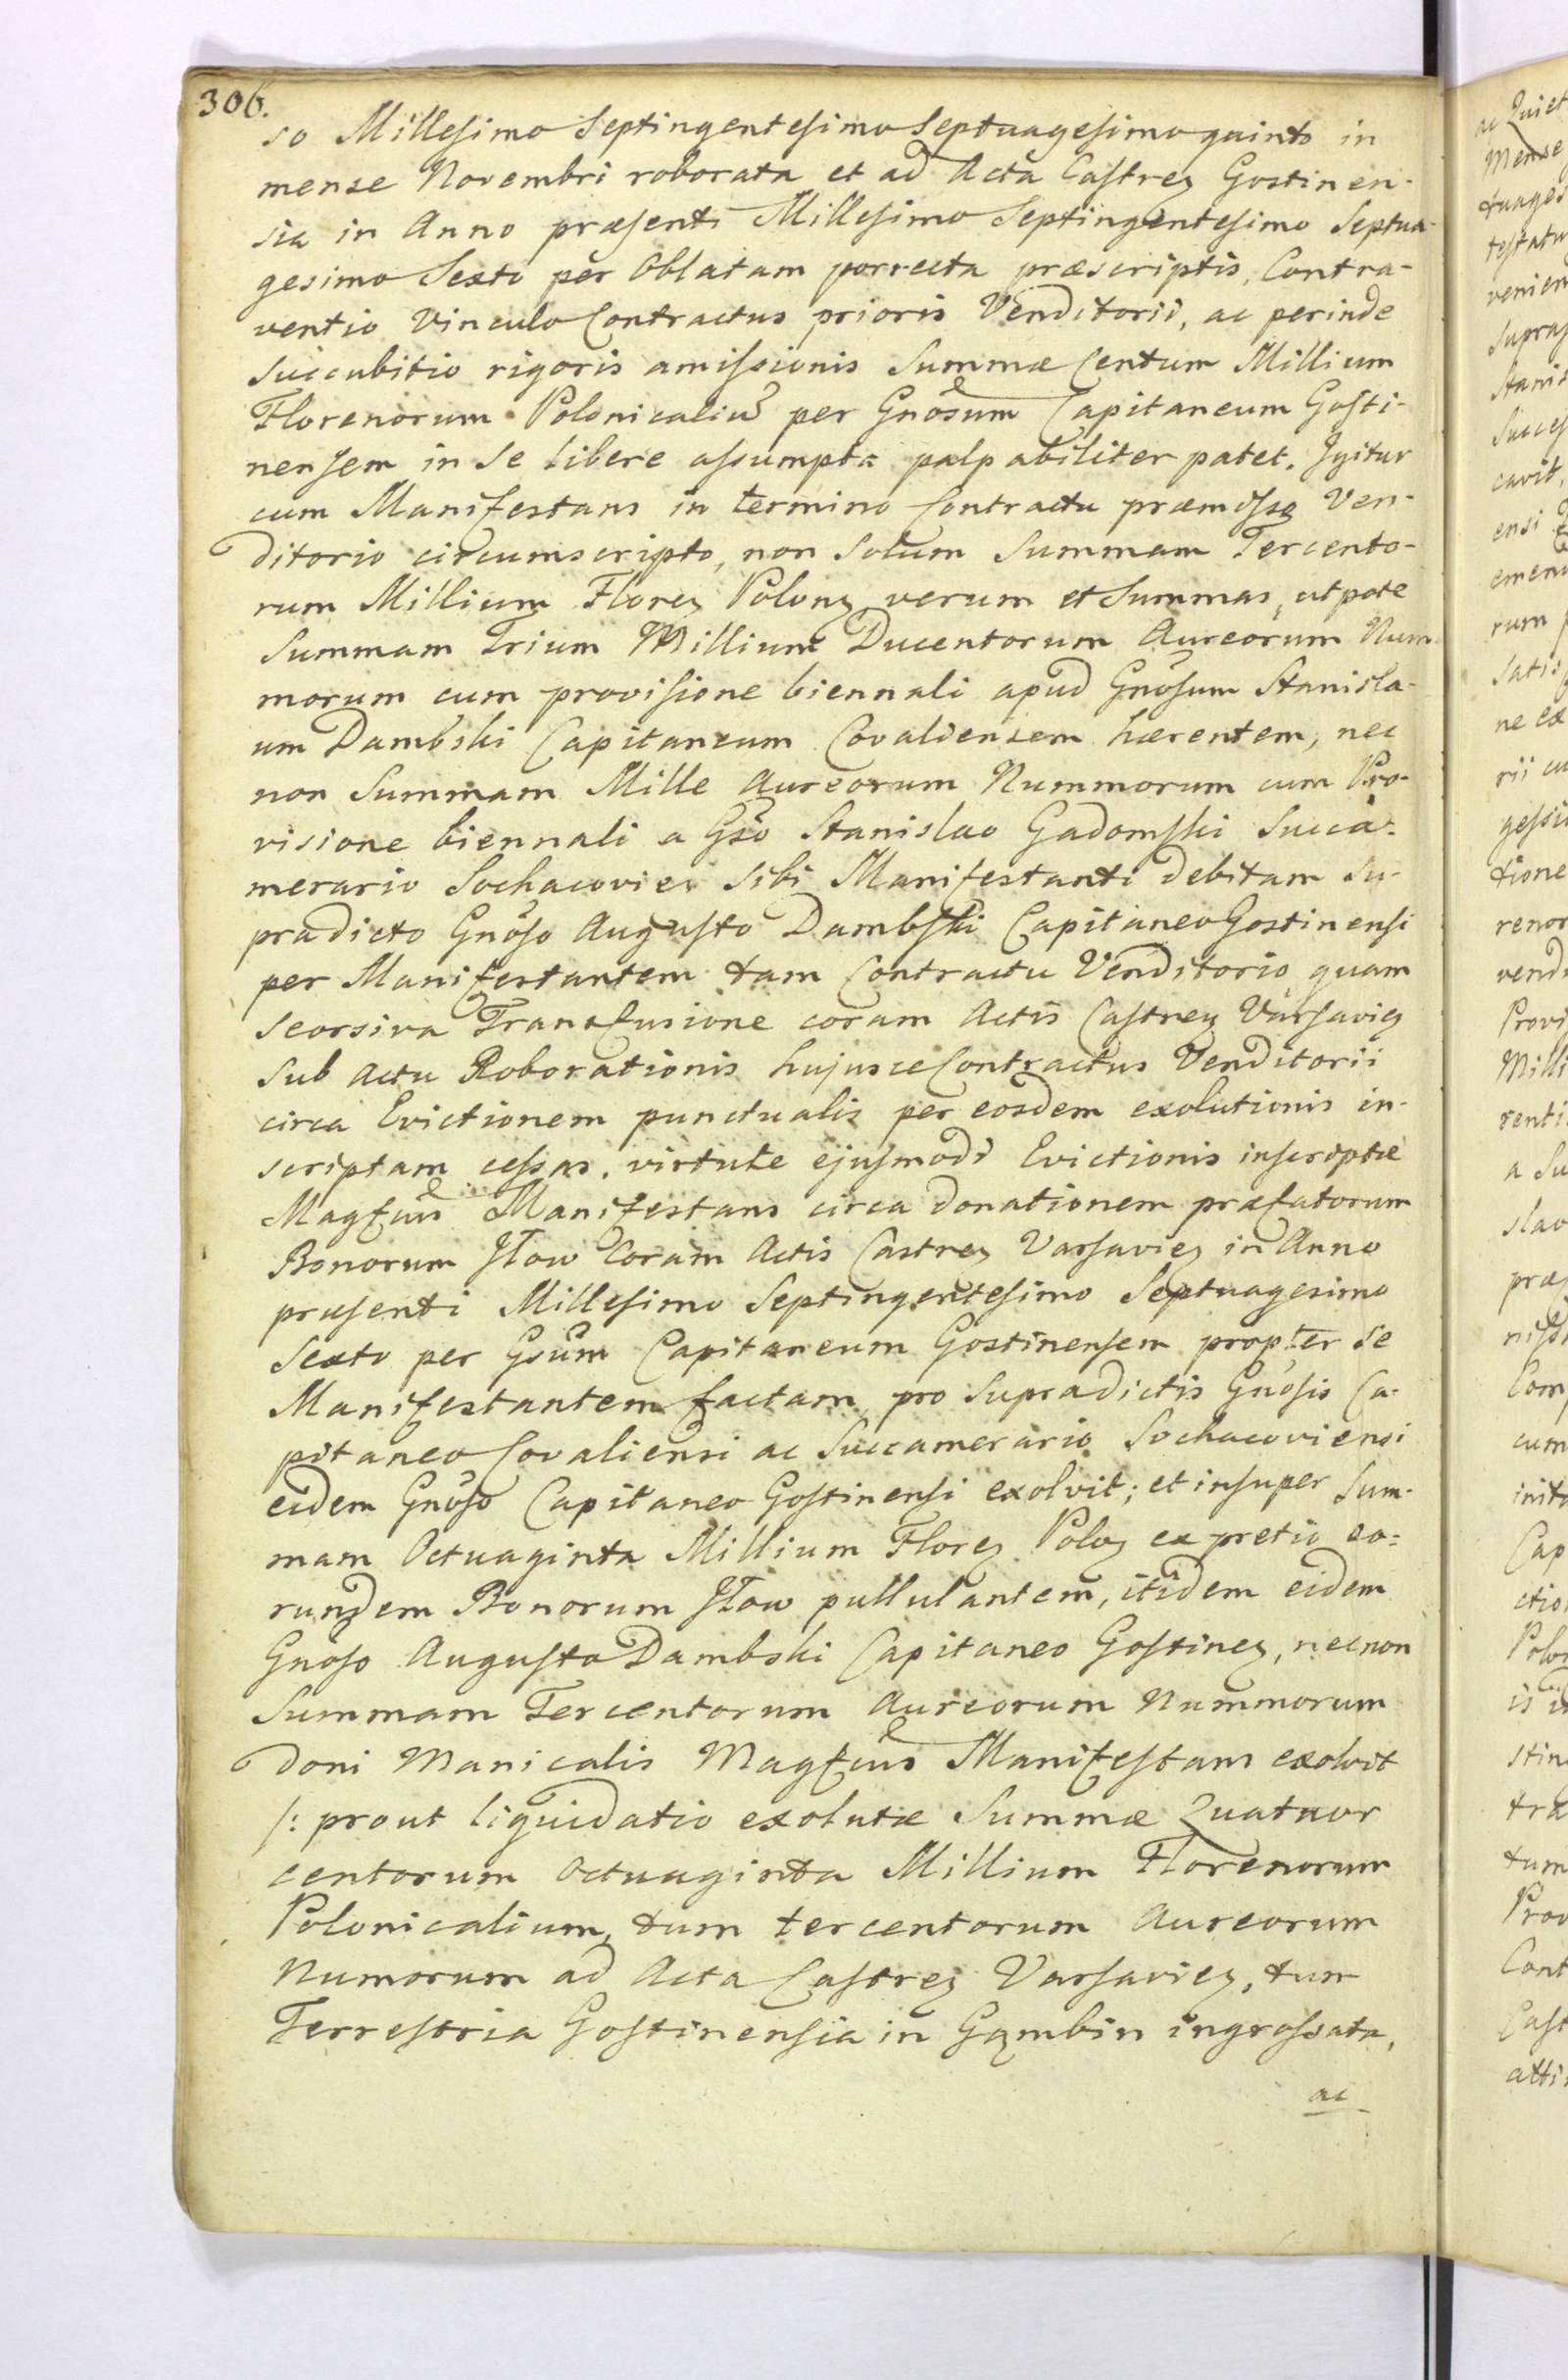 306.
so Millesimo Septingentesimo Septuagesimo quinto in
mense Novembri roborata et ad Acta Castrez Gostinen-
sia in Anno præsenti Millesimo Septingentesimo Septua-
gesimo Sexto per Oblatam porrecta præscriptis, Contra-
ventio Vinculo Contractus prioris Venditorii, ac perinde
succubitio rigoris amissionis Summæ Centum Millium
Florenorum Polonicaliu per Gnosum Capitaneum Gosti-
nensem in se libere assumpta palpabiliter patet. Igitur
cum Manifestans in termino Contractu præmisso Ven-
ditorio circumscripto, non solum Summam Tercento-
rum Millium Florez Polonz verum et Summas, utpote
Summam Trium Millium Ducentorum Aureorum Num
morum cum provisione biennali apud Gnosum Stanisla-
um Dambski Capitaneum Covaliensem hærentem, nec
non Summam Mille Aureorum Nummorum cum Pro-
visione biennali a Gso Stanislao Gadomski Succa-
merario Sochacoviez sibi Manifestanti debitam su-
pradicto Gnoso Augusto Dambski Capitaneo Gostinensi
per Manifestantem tam Contractu Venditorio quam
seorsiva Transfusione coram Actis Castrez Varsaviez
sub actu Roborationis hujusce Contractus Venditorii
circa Evictionem punctualis per eosdem exolutionis in-
scriptam cessas, virtute ejusmodi Evictionis inscriptæ
Magfcus Manifestans circa donationem præfatorum
Bonorum Iłow Coram Actis Castrez Varsaviez in Anno
præsenti Millesimo Septingentesimo Septuagesimo
Sexto per Gsum Capitaneum Gostinensem propter se
Manifestantem factam pro supradictis Gnosis Ca-
pitaneo Covaliensi ac Succamerario Sochacoviensi
eidem Gnoso Capitaneo Gostinensi exolvit; et insuper Sum-
mam Octuaginta Millium Florez Poloz ex pretio eo-
rundem Bonorum Iłow pullulantem, itidem eidem
Gnoso Augusto Dambski Capitaneo Gostinez, necnon
Summam Tercentorum Aureorum Nummorum
doni Manicalis Magfcus Manifestans exolvit
/: prout liquidatio exolutæ Summæ Quatuor
centorum Octuaginta Millium Florenorum
Polonicalium, tum tercentorum Aureorum
Numorum ad Acta Castrez Varsaviez, tum
Terrestria Gostinensia in Gąmbin ingrossata,
ac